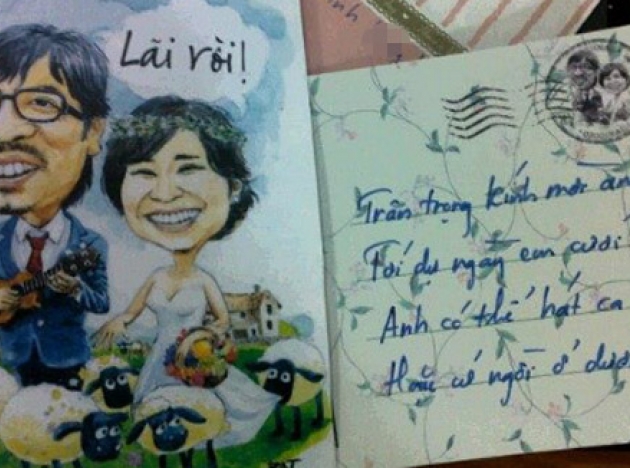 Lãi rồi!
Trân trọng kính mời an
Tới dự ngày em cưới
Anh có thể hát ca
Hoặc cứ ngồi ở dưới